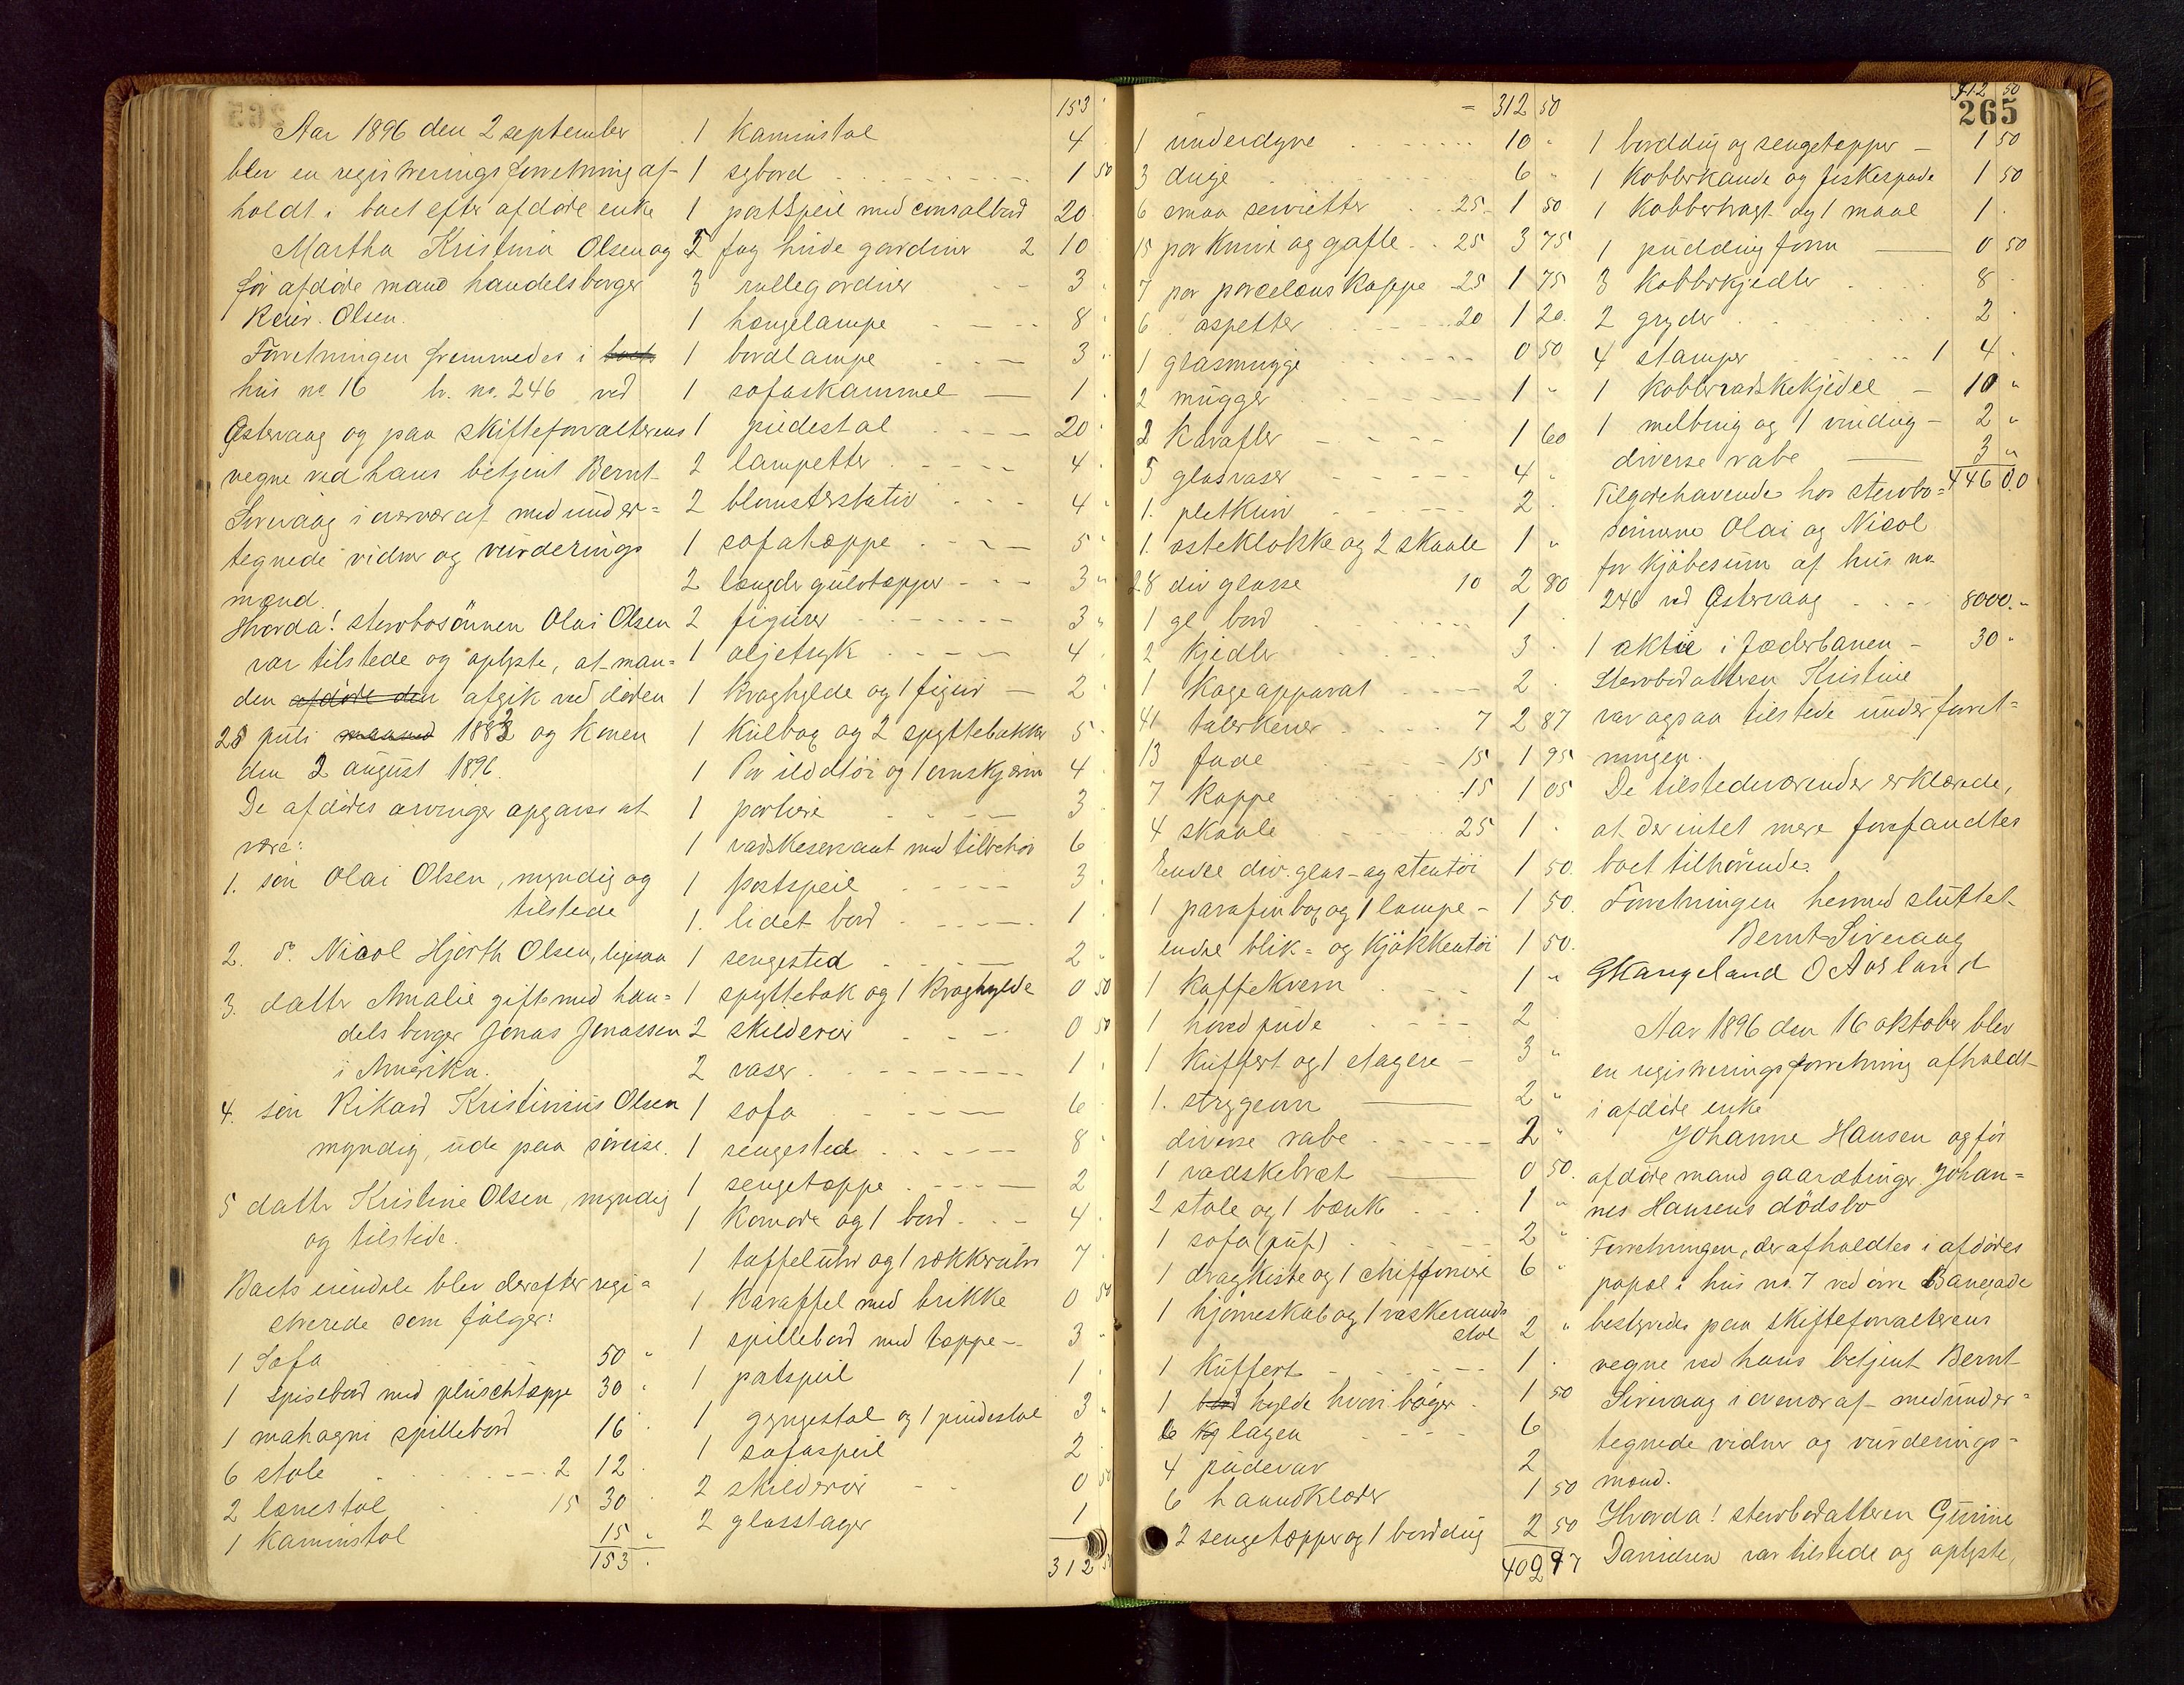 Aar 1896 den 2 september
blev en registreringsforretning af-
holdt i boet efter afdøde enke
Martha Kristina Olsen og
før afdøde mand handelsborger
Olsen.
Forretningen fremmedes i boets
hus no. 16 br. no. 246 ved
Østervaag og paa skifteforvalterens
vegne ved hans betjent Bernt
Sirevaag i overvær af medunder=
tegnede vidner og vurderings
mænd.
Hvorda! stervbosönnen Olai Olsen
var tilstede og oplyste, at man=
den afdøde den afgik ved døden
25 juli maaned 1883 og konen
den 2 august 1896.
De afdødes arvinger opgaves at
være:
1. søn Olai Olsen, myndig og
tilstede
2. do. Nicol Hjorth Olsen, ligesaa
3. datter Amalie gift med han=
delsborger Jonas Jonassen
i Amerika.
4. søn Rikard Kristinius Olsen
myndig, ude paa søreise.
5 datter Kristine Olsen, myndig
og tilstede.
Boets eiendele blev derefter regi=
strerede som følger:
1 Sofa 50 "
1 spisebord med plüschtæppe 30 "
1 mahogni spillebord 16 "
6 stole 2 12 "
2 lænestol 15 30
1 kaminstol 15 "
153 "
153 "
1 kaminstol 4
1 sybord 1 50
1 postspeil med consolbord 20
5 fag hvide gardiner 2 10
3 rullegardiner 3
1 hængelampe 8
1 bordlampe 3
1 sofaskammel 1
1 piedestal 20
2 lampetter 4
2 blomsterstativ 4
1 sofatæppe 5
2 længder gulvtæpper 3 "
2 figurer 3 "
1 oljetryk 4
1 kroghylde og 1 figur 2
1 kulbox og 2 spyttebakker 5
1 Par ildtøi og 1 ovnskjærm 4
1 portiere 3
1 vadskeservant med tilbehør 6
1 postspeil 3
1. lidet bord 1
1 sengested 2
1 spyttebak og 1 kroghylde 0 50
2 skilderier 0 50
2 vaser 1
1 sofa 6
1 sengested 8
1 sengetæppe 2
1 Komode og 1 bord 4
1 taffeluhr og 1 vækkeruhr 7
1 karaffel med brikke 0 50
1 spillebord med tæppe 3
1 potspeil 1
1 gyngestol og 1 pindestol 3
1 sofaspeil 2
2 skilderier 0 50
2 glasstager 1
312 50
312 50
1 underdyne 10 "
3 duge 6 "
6 smaa servietter 25 1 50
15 par knive og gafle 25 3 75
7 par porcelænskoppe 25 1 75
6 aspetter 20 1 20
1 glasmugge 0 50
2 mugger 1 "
2 Karafler 1 60
5 glasvaser 4 "
1. pletkniv 2
1. osteklokke og 2 skaale 1 "
28 div glasse 10 2 80
1 gl bord 1
2 kjedler 3
1 kogeapparat 2
41 talerkener 7 2 87
13 fade 15 1 95
7 koppe 15 1 05
4 skaale 25 1
Endel div. glas- og stentøi 1 50
1 parafinbox og 1 lampe 1 50
endel blik- og kjøkkentøi 1 50
1 kaffekvern 1 "
1 hovedpude 2
1 kuffert og 1 etagere 3 "
1. strygeovn 2 "
diverse rabe 2 "
1 vadskebræt 0 50
2 stole og 1 bænk 1 "
1 sofa (puf) 2 "
1 dragkiste og 1 chiffoniere 6 "
1 hjørneskab og 1 vaskevands
stol 2 "
1 kuffert 1
1 bord hylde hvori bøger 1 50
6 kg lagen 6
4 pudevar 2
6 haandklæder 1 50
2 sengetæpper og 1 borddug 2 50
409 97
412 50
265
1 borddug og sengetæpper 1 50
1 kobberkande og fiskespade 1 50
1 kobbertragt og 1 maal 1
1 puddingform 0 50
3 kobberkjedler 8
2 gryder 2
4 stamper 1 4
1 kobbervadskekjedel 10 "
1 melbing og 1 vinding 2 "
diverse rabe 3 "
Tilgodehavende hos stervbo= 446 00
sønnerne Olai og Nicol
for kjøbesum af hus no
246 ved Østervaag 8000.-
1 aktie i Jæderbanen 30 "
Stervbodatteren Kristine
var ogsaa tilstede under forret=
ningen.
De tilstedeværender erklærede,
at der intet mere forefandtes
boet tilhørende.
Forretningen hermed sluttet
Bernt Sirevaag
GKangeland O Aasland
Aar 1896 den 16 oktober blev
en registreringsforretning afholdt
i afdøde enke
Johanne Hansen og før
afdøde mand gaardbruger Johan=
nes Hansens dødsbo
Forretningen, der afholdtes i afdødes
popæl i hus no. 7 ved øvre Banegade
bestyredes paa skifteforvalterens
vegne ved hans betjent Bernt
Sirevaag i overvær af medunder=
tegnede vidner og vurderings=
mænd.
Hvorda! stervbodatteren Gurine
Danielsen var tilstede og oplyste,